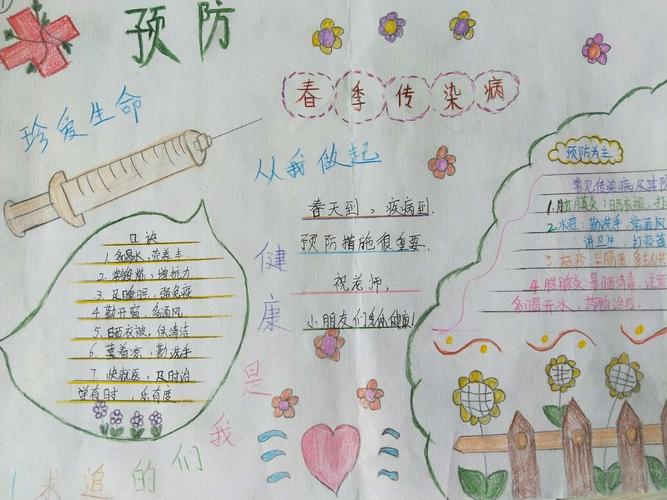 预防
珍爱生命
春季传染病
从我做起
春天到，疾病到.
预防措施很重要.
祝老师，
小朋友们身体健康!
口诀
2. 常锻炼，增抗力
3. 足睡眠，强免疫
4 勤开窗，多通风
5. 晒衣被，保清洁
6. 莫着凉，勤洗手
7. 快就医，及时治
学有时，乐有度
健康是我们的追求
预防为主
常见传染病及其预
1. 肺炎：晒衣被，打
2. 水痘：勤洗手，常通风
讲卫生，打疫苗
4. 腮腺炎：暴晒消毒
多喝开水，药物治疗.